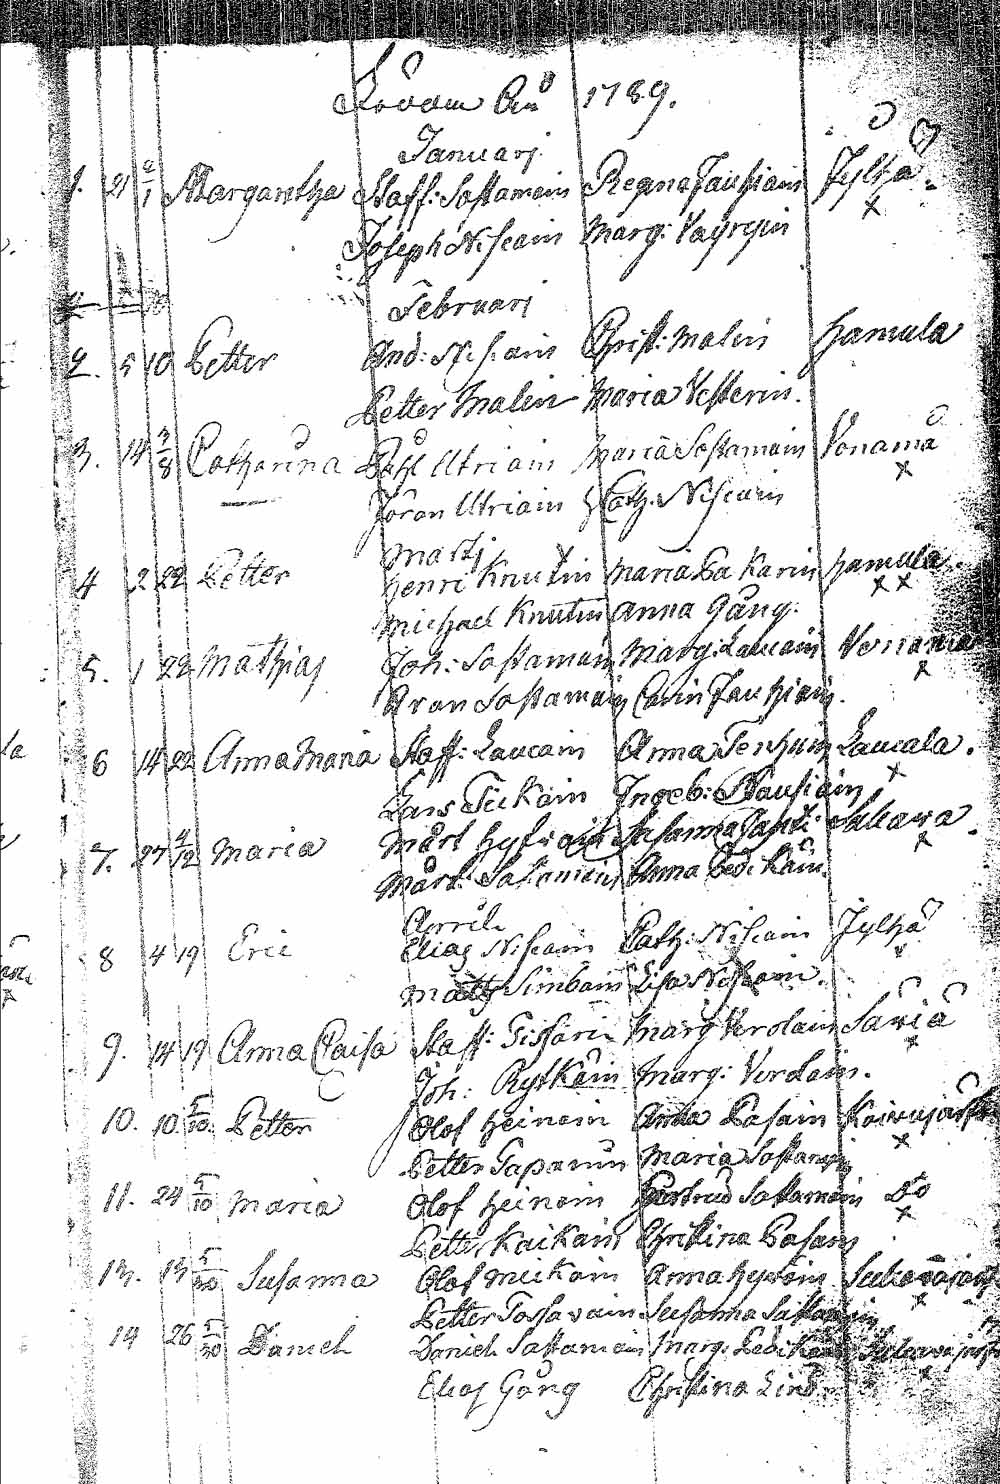 Födde Åno 1789.
Januarj
1. 21 2/1 Margaretha Staff: Sastamoin Regina Jauhiain Jylhä
Joseph Niskain Marg: Väyryin
Februarj
2. 5 10 Petter And: Niskain Christ: Malin Hamula
Petter Malin Maria Vesterin.
3. 14 3/8 Catharina Påhl Utriain Maria Sastamoin Vonama
Jöran Utriain Cath. Niskain
Martj
4 2 22 Petter Henri Knutin Maria Pakarin Hamula.
Michael Knutin Anna Gång.
5. 1 22 Mathias Joh: Sastamoin Marg: Laucain Vonama
Aron Sastamoin Carin Jauhiain.
6 14 22 Anna Maria Staff: Laucain Anna Tenhuin Laucala.
Lars Tickain Ingeb: Nausiain
7. 27 4/12 Maria Mårt Hyfvain Susanna
Mårt: Sastamoin Anna Ledikäin.
April
8 4 19 Eric Elias Niskain Cath: Niskain Jylhä
Matts Simbain Lisa Niskain.
9. 14 19 Anna Caisa Staff: Tissari Marg Verolain Säviä
Joh: Rytkäin Marg: Verolain.
10. 10 5/10 Petter Olof Heinoin Anna Pasain Koivujärfvi
Petter Tapanin Maria Sastamoin
11. 24 5/10 Maria Olof Heinoin Gertrud Sastamoin Do
Petter Kaikain Christina Pasain
13. 13 5/30 Susanna Olof Mickain Anna Hyvöin
Petter Tossavain Susanna Sastamoin
14 26 5/30 Daniel Daniel Sastamoin Marg. Ledikäin
Elias Gång Christina Lind